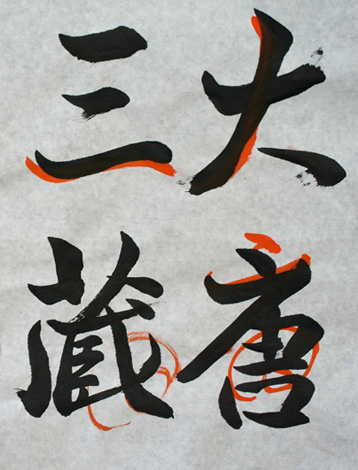 大唐
三藏